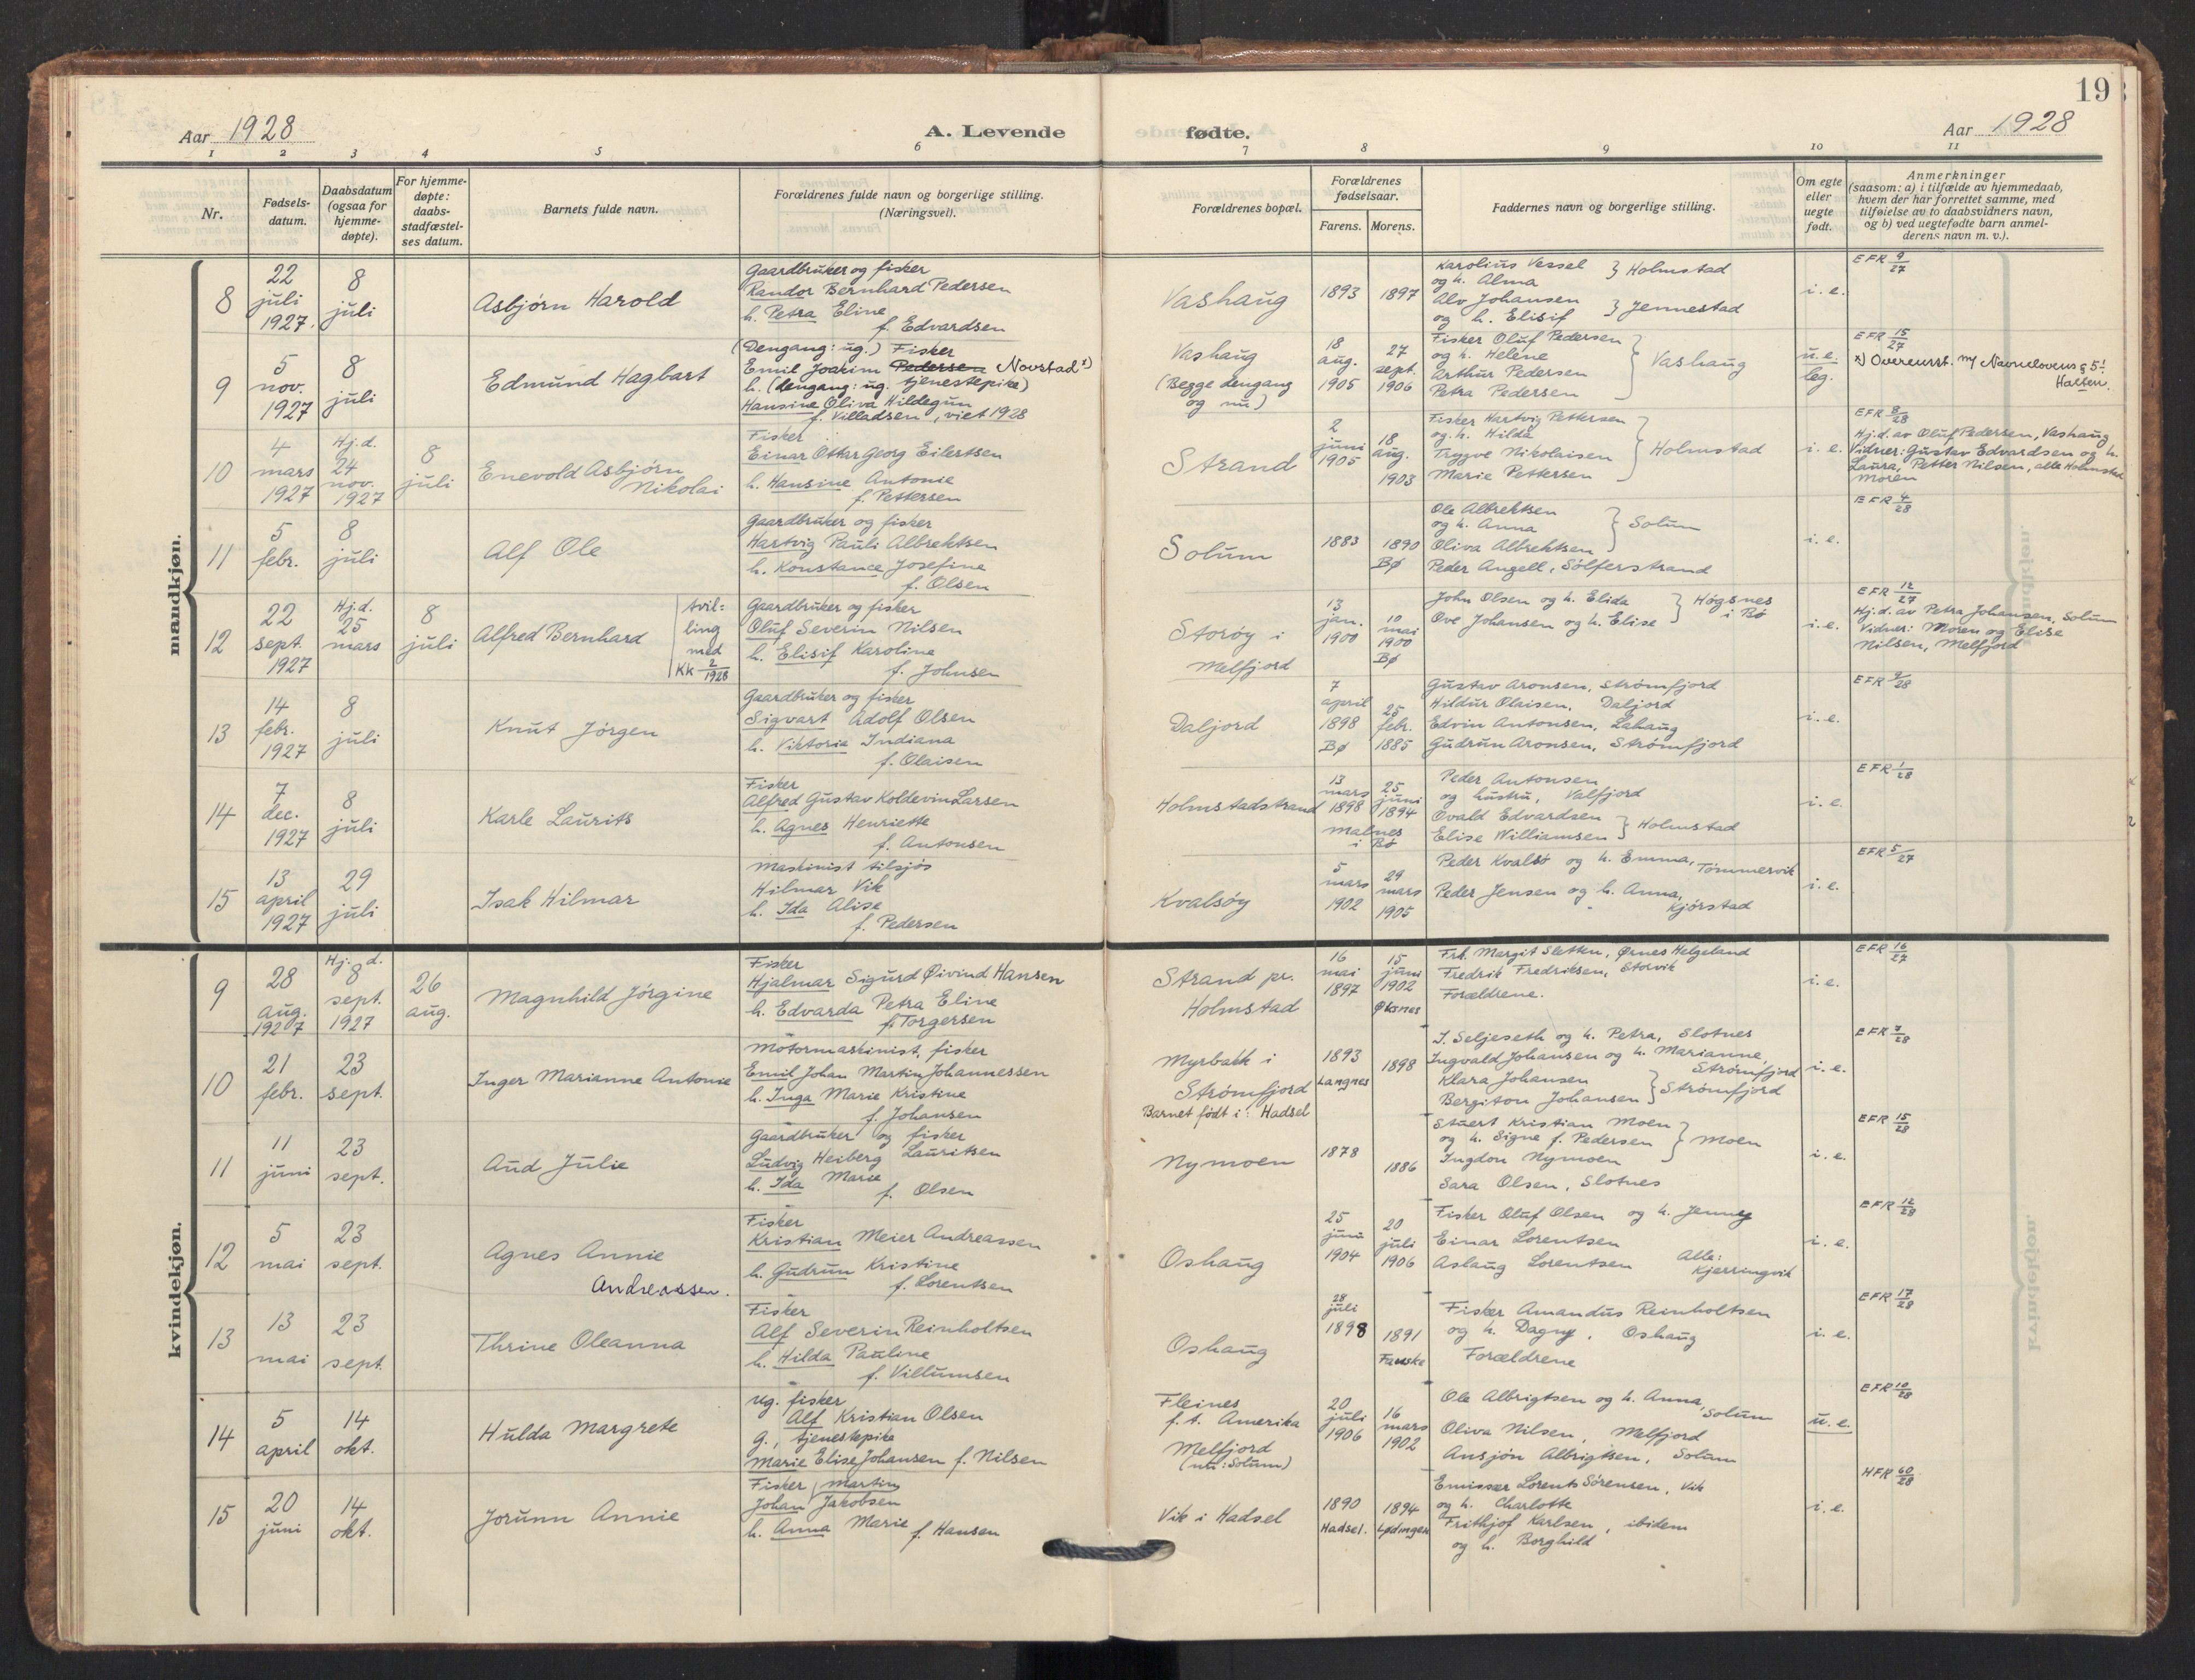 19
Aar 1928
A. Levende
fødte.
Aar 1928
1 2 3 4 5 6 7 8 9 10 11
Nr.
Fødsels-
datum.
Daabsdatum
(ogsaa for
hjemme-
døpte).
For hjemme-
døpte:
daabs-
stadfæstel-
ses datum.
Barnets fulde navn.
Forældrenes fulde navn og borgerlige stilling.
(Næringsvei).
Forældrenes bopæl.
Forældrenes
fødselsaar.
Farens. Morens.
Faddernes navn og borgerlige stilling.
Om egte
eller
uegte
født.
Anmerkninger
(saasom: a) i tilfælde av hjemmedaab,
hvem der har forrettet samme, med
tilføielse av to daabsvidners navn,
og b) ved uegtefødte barn anmel-
derens navn m. v.).
mandkjøn.
8
22
juli
1927.
8
juli
Asbjørn Harold
Gaardbruker og fisker
Randor Bernhard Pedersen
h. Petra Eline
f. Edvardsen
Vashaug
1893 1897
Karolius Vessel
og h. Alma } Holmstad
Alv Johansen
og h. Elisif } Jennestad
i. e.
EFR 9/27
9
5
nov.
1927
8
juli
Edmund Hagbart
(Dengang: ug.) Fisker
Emil Joakim Pedersen Novstad x)
h. (dengang: ug. tjenestepike)
Hansine Oliva Hildegun
f. Villadsen, viet 1928
Vashaug
(Begge dengang
og nu)
18
aug.
1905
27
sept.
1906
Fisker Oluf Pedersen
og h. Helene
Arthur Pedersen
Petra Pedersen
} Vashaug
u. e.
leg.
EFR 15/27
x) Overensst. m/ Navnelovens § 5!
Halsen.
10
4
mars
1927
Hj.d.
24
nov.
1927
8
juli
Enevold Asbjørn
Nikolai
Fisker
Einar Ottar Georg Eilertsen
h. Hansine Antonie
f. Pettersen
Strand
2
juni
1905
18
aug.
1903
Fisker Hartvig Pettersen
og h. Hilda
Trygve Nikolaisen
Marie Pettersen
} Holmstad
i. e.
EFR 8/28
Hj.d. av Oluf Pedersen, Vashaug
Vidner: Gustav Edvardsen og h.
Laura, Petter Nilsen, alle Holmstad
Moren
11
5
febr.
8
juli
Alf Ole
Gaardbruker og fisker
Hartvig Pauli Albrektsen
h. Konstance Josefine
f. Olsen
Solum
1883 1890
Bø
Ole Albrektsen
og h. Anna
Oliva Albrektsen
} Solum
Peder Angell, Sølferstrand
i. e.
EFR 4/28
12
22
sept.
1927
Hj.d.
25
mars
8
juli
Alfred Bernhard
tvil-
ling
med
Kk 2/1928
Gaardbruker og fisker
Oluf Severin Nilsen
h. Elisif Karoline
f. Johnsen
Storøy i
Melfjord
13
jan.
1900
10
mai
1900
Bø
John Olsen og h. Elida
Ove Johansen og h. Elise
} Høgsnes
i Bø
i. e.
EFR 12/27
Hj.d. av Petra Johansen, Solum
Vidner: Moren og Elise
Nilsen, Melfjord
13
14
febr.
1927
8
juli
Knut Jørgen
Gaardbruker og fisker
Sigvart Adolf Olsen
h. Viktoria Indiana
f. Olaisen
Daljord
7
april
1898
Bø
25
febr.
1885
Gustav Aronsen, Strømfjord
Hildur Olaisen, Daljord
Edvin Antonsen, Lahaug
Gudrun Aronsen, Strømfjord
i. e.
EFR 9/28
14
7
dec.
1927
8
juli
Karle Laurits
Fisker
Alfred Gustav Koldevin Larsen
h. Agnes Henriette
f. Antonsen
Holmstadstrand
13
mars
1898
Malnes
i Bø
25
juni
1894
Peder Antonsen
og hustru, Valfjord
Ovald Edvardsen
Elise Williamsen } Holmstad
i. e.
EFR 1/28
15
13
april
1927
29
juli
Isak Hilmar
Maskinist tilsjøs
Hilmar Vik
h. Ida Alise
f. Pedersen
Kvalsøy
5
mars
1902
29
mars
1905
Peder Kvalsø og h. Emma, Tømmervik
Peder Jensen og h. Anna,
Kjørstad
i. e.
EFR 5/27
kvindekjøn.
9
28
aug.
1927
Hj. d.
8
sept.
1927
26
aug.
Magnhild Jørgine
Fisker
Hjalmar Sigurd Øivind Hansen
h. Edvarda Petra Eline
f. Torgersen
Strand pr.
Holmstad
16
mai
1897
15
juni
1902
Øksnes
Frk. Margit Sletten, Ørnes Helgeland
Fredrik Fredriksen, Storvik
Forældrene.
i. e.
EFR 16/27
10
21
febr.
23
sept.
Inger Marianne Antonie
Motormaskinist, fisker
Emil Johan Martin Johannessen
h. Inga Marie Kristine
f. Johansen
Myrbakk i
Strømfjord
Barnet født i: Hadsel
1893
Langnes
1898
I. Seljeseth og h. Petra, Slotnes
Ingvald Johansen og h. Marianne,
Strømfjord
Klara Johansen
Bergiton Johansen } Strømfjord
i. e.
EFR 7/28
11
11
juni
23
sept.
Aud Julie
Gaardbruker og fisker
Ludvig Heiberg Lauritsen
h. Ida Marie
f. Olsen
Nymoen
1878 1886
Stuert Kristian Moen
og h. Signe f. Pedersen
Ingdon Nymoen
} Moen
Sara Olsen, Slotnes
i. e.
EFR 15/28
12
5
mai
23
sept.
Agnes Annie
Andreassen.
Fisker
Kristian Meier Andreassen
h. Gudrun Kristine
f. Lorentsen
Oshaug
25
juni
1904
20
juli
1906
Fisker Oluf Olsen og h. Jenny
Einar Lorentsen
Aslaug Lorentsen
Alle:
Kjerringvik
i. e.
EFR 12/28
13
13
mai
23
sept.
Thrine Oleanna
Fisker
Alf Severin Reinholtsen
h. Hilda Pauline
f. Villumsen
Oshaug
28
juli
1898
1891
Fauske
Fisker Amandus Reinholtsen
og h. Dagny, Oshaug
Forældrene
i. e.
EFR 17/28
14
5
april
14
okt.
Hulda Margrete
ug. fisker
Alf Kristian Olsen
g., tjenestepike
Marie Elise Johansen f. Nilsen
Fleines
f. t. Amerika
Melfjord
(nu: Solum)
20
juli
1906
16
mars
1902
Ole Albrigtsen og h. Anna,
Solum
Oliva Nilsen, Melfjord
Ansjøn Albrigtsen, Solum
u. e.
EFR 10/28
15
20
juni
14
okt.
Jorunn Annie
Fisker Martin
Johan Jakobsen
h. Anna Marie
f. Hansen
Vik i Hadsel
1890
Hadsel.
1894
Lødingen
Emissær Lorents Sørensen, Vik
og h. Charlotte
Frithjof Karlsen, ibidem
og h. Borghild
i. e.
HFR 60/28